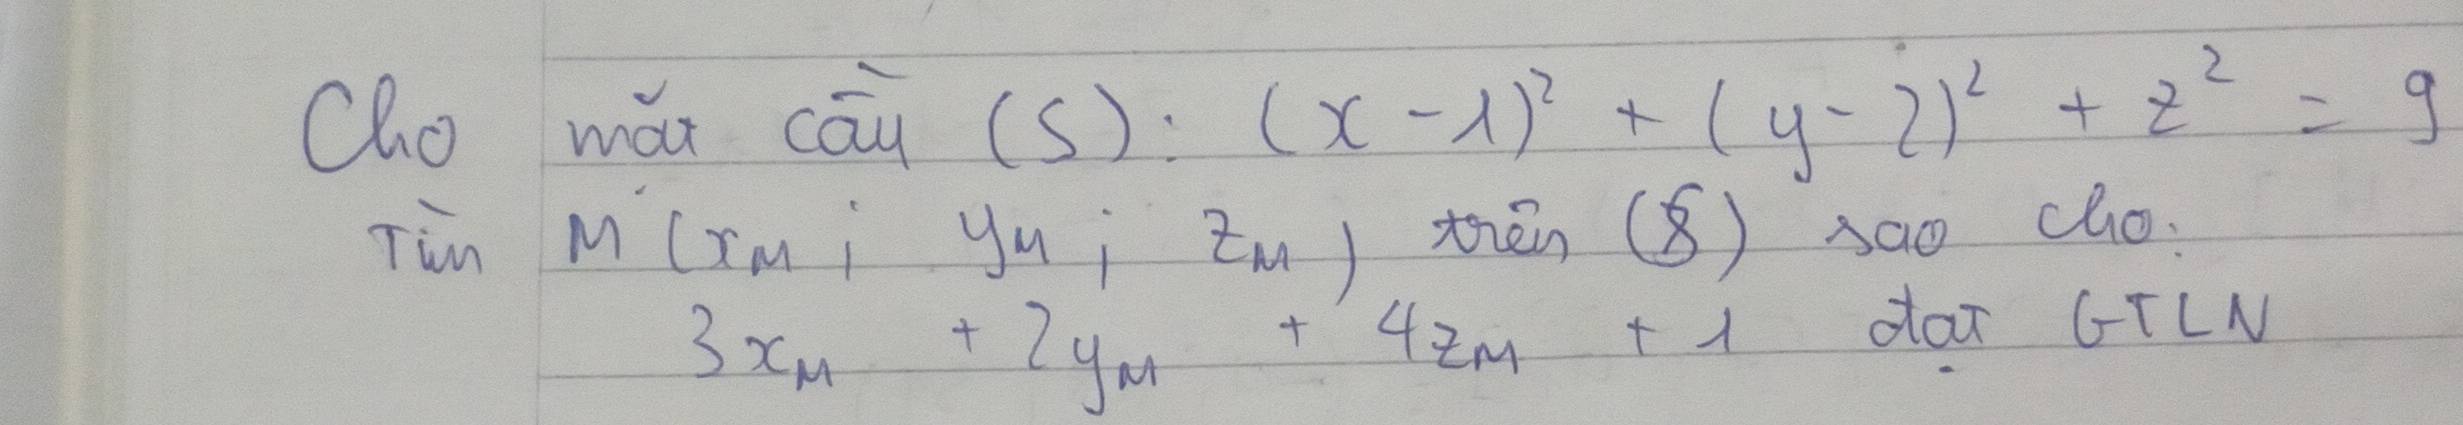 Cho mặt cầu (S): (x - 1)² + (y - 2)² + z² = 9
Tìm M (x_M ; y_M ; z_M) trên (S) sao cho:
3x_M + 2y_M + 4z_M + 1 đạt GTLN